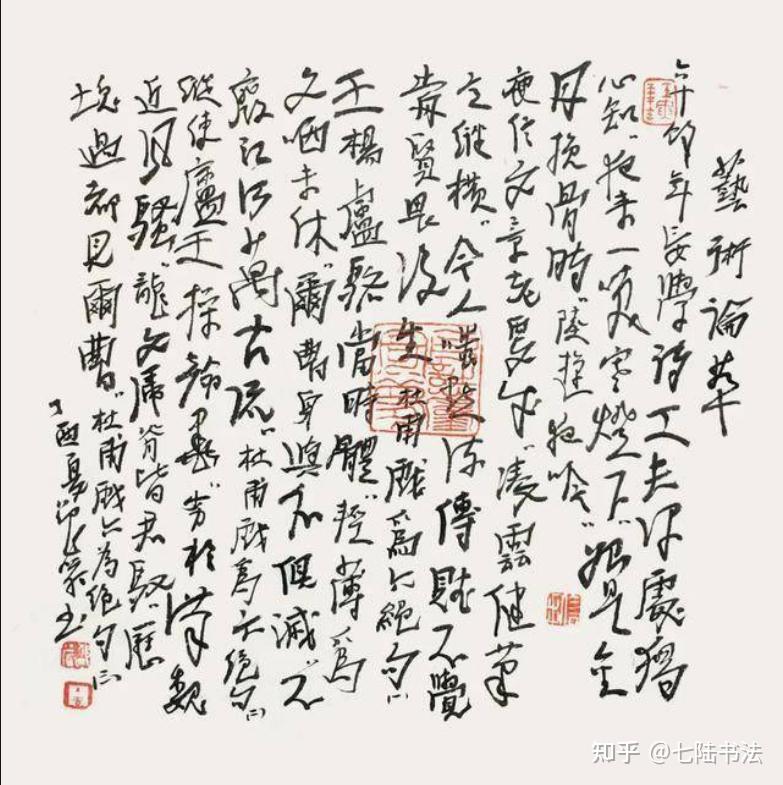 藝術論若干
六十餘年妄學詩工夫深處獨
心知"夜來一笑寒燈下"始是金
丹換骨時"陸遊夜吟
庾信文章老更成"凌雲健筆
意縱橫"今人嗤點流傳賦不覺
前賢畏後生"杜甫戲為六絕句(一)
王楊盧駱當時體"輕薄為
文哂未休"爾曹身與名俱滅"不
廢江河萬古流"杜甫戲為六絕句(二)
縱使盧王操翰墨"劣於漢魏
近風騷"龍文虎脊皆君馭"歷
塊過都見爾曹"杜甫戲六為絕句(三)
丁酉夏 書
知乎 @七陆书法